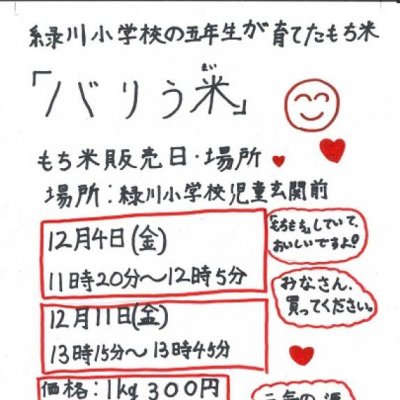 緑川小学校の五年生が育てたもち米
「バリう米」
まい
もち米販売日・場所
場所：緑川小学校児童玄関前
12月4日(金)
11時20分〜12時5分
「もちもち」していて、
おいしいですよ!
みなさん、
買ってください。
12月11日(金)
13時15分〜13時45分
価格：1kg 300円
元気の源